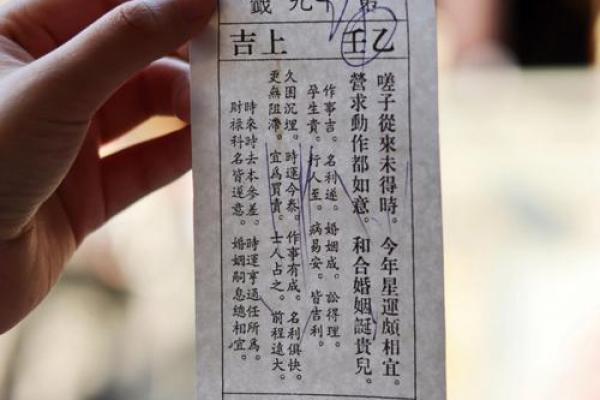 第十九籤
乙壬
上吉
嗟子從來未得時。今年星運頗相宜。
營求動作都如意。和合婚姻誕貴兒。
作事吉。名利遂。婚姻成。訟得理。
孕生貴。行人至。病易安。皆吉利。
久困沉埋。時運今泰。作事有成。名利俱快。
更無阻滯。宜爲買賣。士人占之。前程遠大。
時來時去本參差。時運亨通任所爲。
財祿科名皆遂意。婚姻嗣息總相宜。